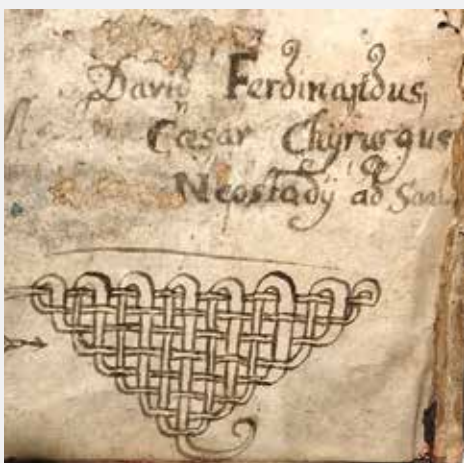 David Ferdinandus,
Cæsar Chÿrurgus
Neostadÿ ad